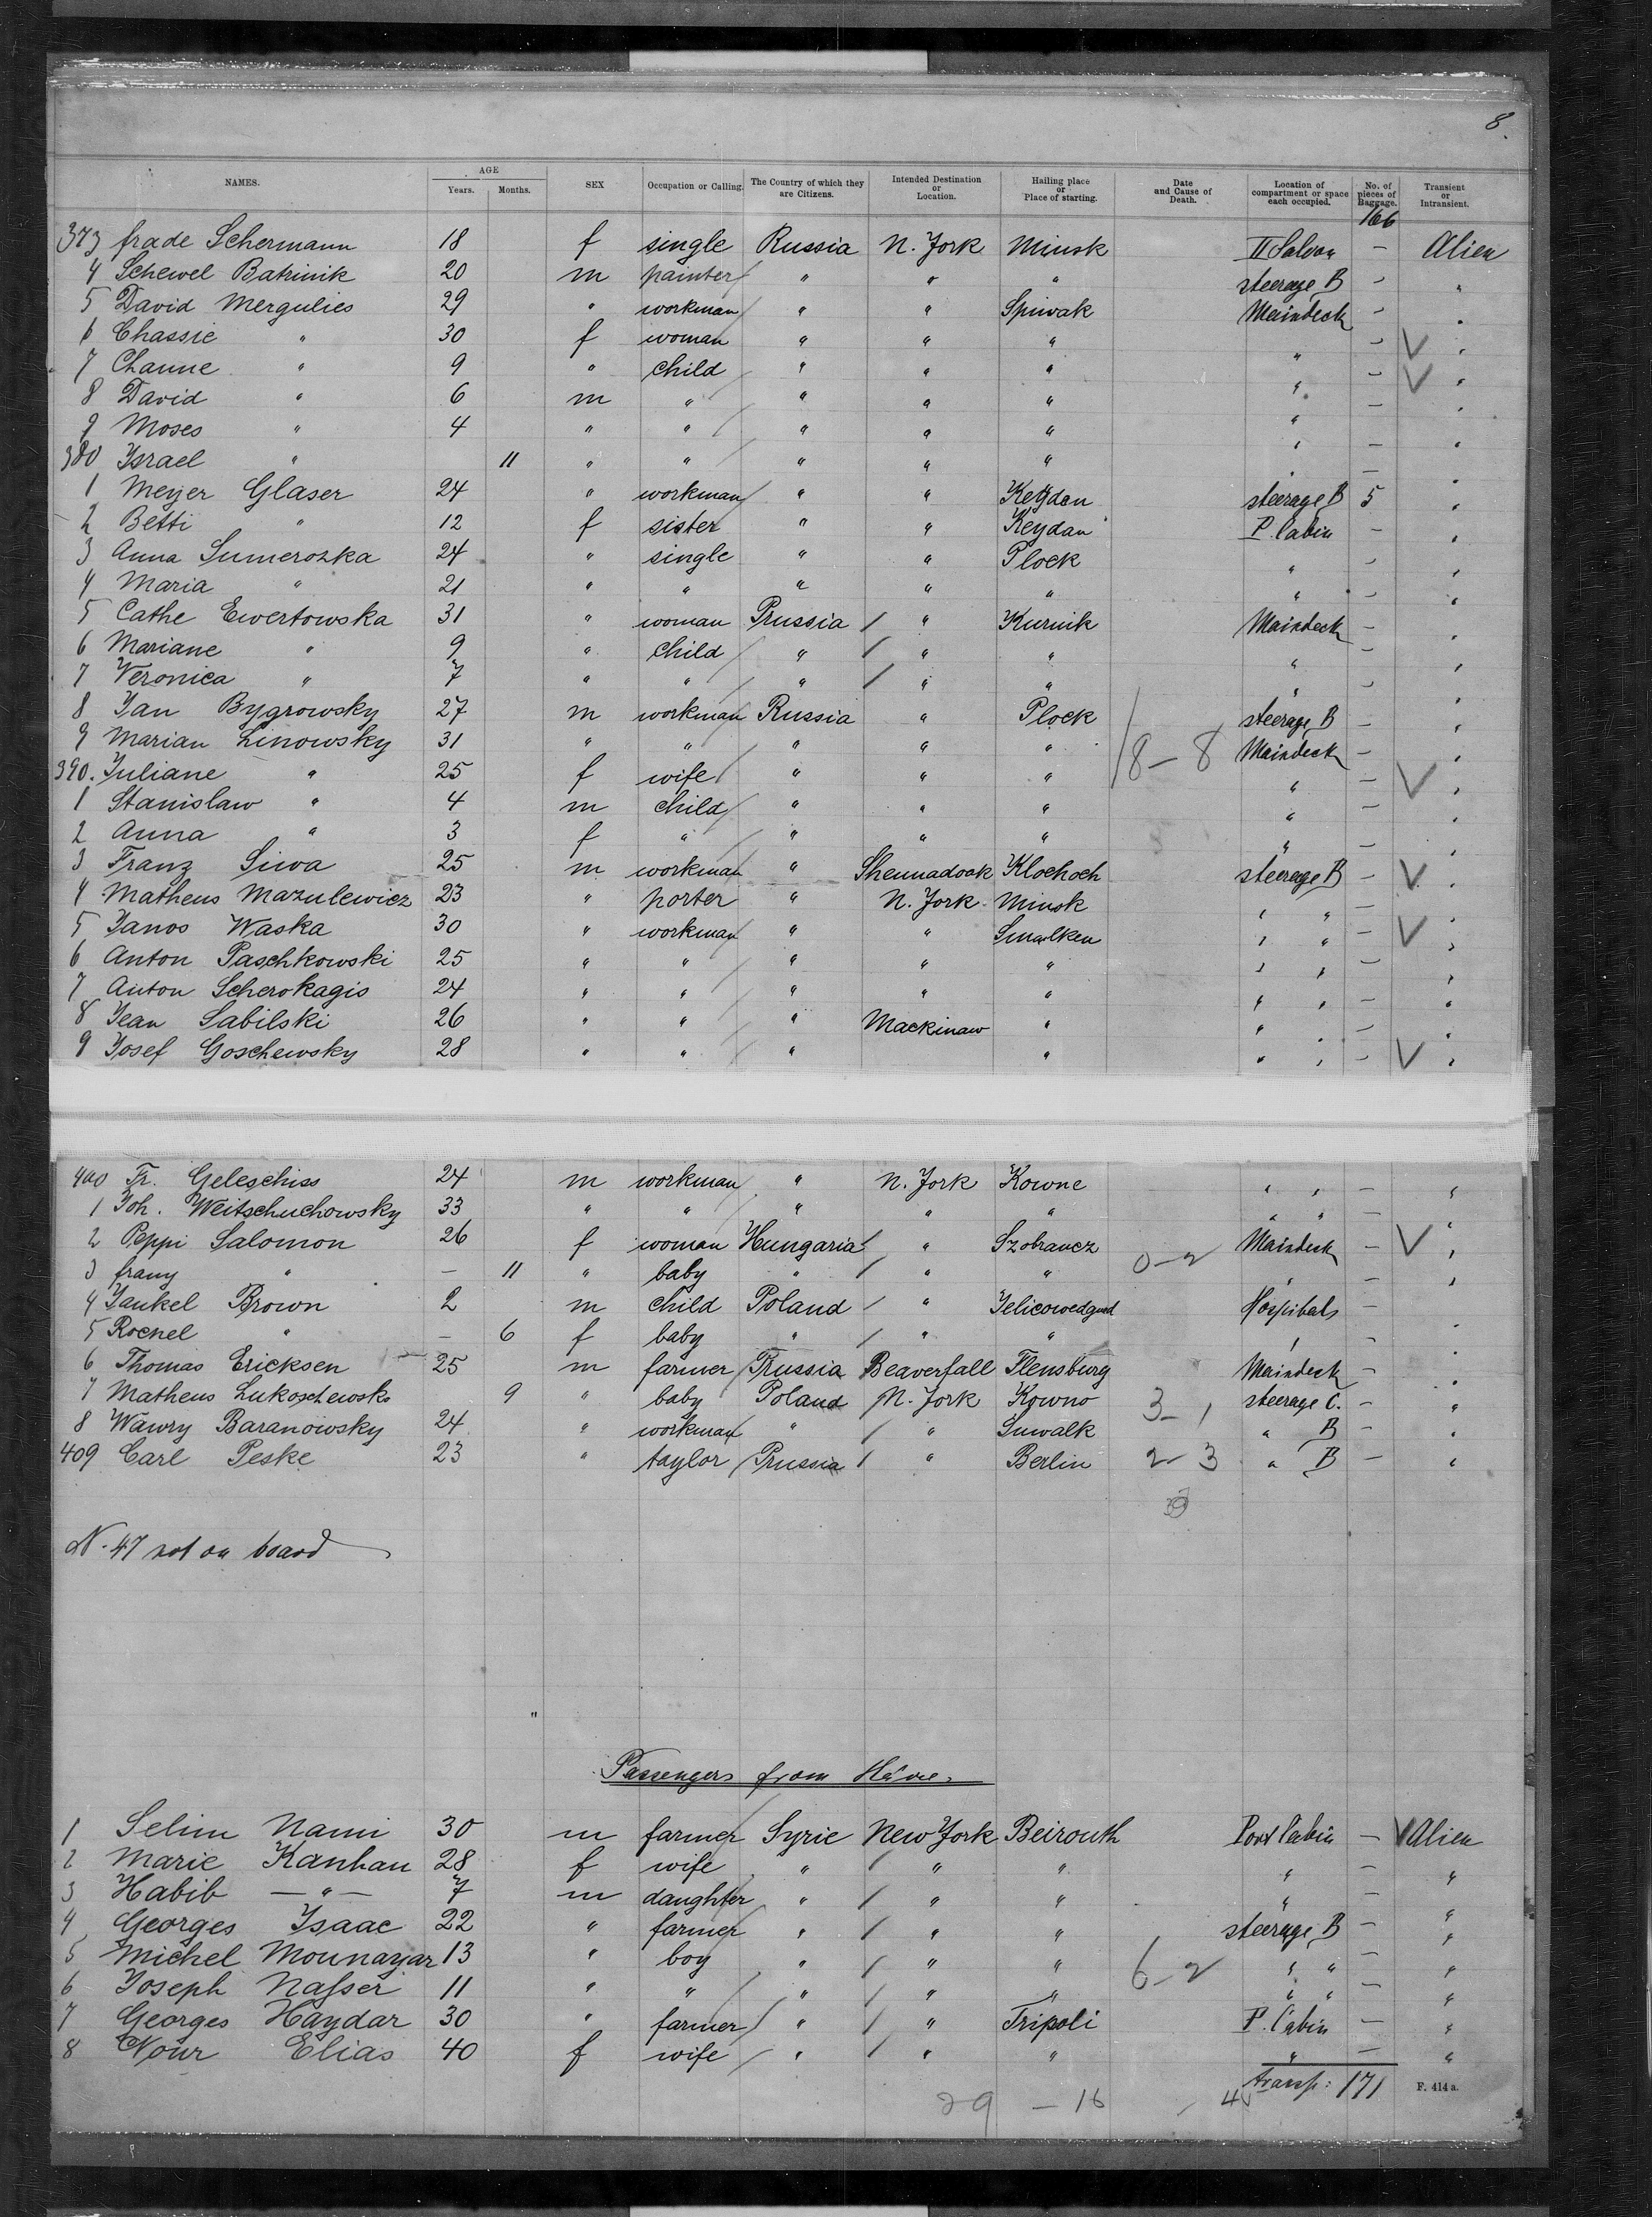 8.
NAMES. AGE Years. Months. SEX Occupation or Calling. The Country of which they are Citizens. Intended Destination or Location. Hailing place or Place of starting. Date and Cause of Death. Location of compartment or space each occupied. No. of pieces of Baggage. Transient or Intransient.
166
373 frade Schermann 18 f single Russia N. York Minsk II Saloon – Alien
4 Schewel Batrinik 20 m painter " " " steerage B – "
5 David Mergulies 29 " workman " " Spiwak Maindeck – "
6 Chassie " 30 f woman " " " " – V "
7 Channe " 9 " child " " " " – V "
8 David " 6 m " " " " " – "
9 Moses " 4 " " " " " " – "
380 Israel " 11 " " " " " " – "
1 Meyer Glaser 24 " workman " " Keydan steerage B 5 "
2 Betti " 12 f sister " " Keydan P. Cabin – "
3 Anna Sumerozka 24 " single " " Plock " – "
4 Maria " 21 " " " " " " – "
5 Cathe Ewertowska 31 " woman Prussia / " Kurnik Maindeck – "
6 Mariane " 9 " child " / " " " – "
7 Veronica " 7 " " " / " " " – "
8 Jan Bygrowsky 27 m workman Russia " Plock steerage B – "
9 Marian Linowsky 31 " " " " " 18 – 8 Maindeck – "
390. Juliane " 25 f wife " " " " – V "
1 Stanislaw " 4 m child " " " " – "
2 Anna " 3 f " " " " " – "
3 Franz Siwa 25 m workman " Shennadoak Klochoch steerage B – V "
4 Matheus Mazulewicz 23 " porter " N. York Minsk " " – "
5 Janos Waska 30 " workman " " Smalken " " – V "
6 Anton Paschkowski 25 " " " " " " " – "
7 Anton Scherokagis 24 " " " " " " " – "
8 Jean Sabilski 26 " " " Mackinaw " " " – "
9 Josef Goschewsky 28 " " " " " " – V "
400 Fr. Geleschiss 24 m workman " N. York Kowne " " – "
1 Joh. Weitschuchowsky 33 " " " " " " " – "
2 Peppi Salomon 26 f woman Hungaria / " Szobrancz 0 – 2 Maindeck – V "
3 frany " – 11 " baby " / " " " – "
4 Jankel Brown 2 m child Poland / " Hospitals –
5 Rochel " – 6 f baby " / " " " – "
6 Thomas Ericksen 25 m farmer Prussia Beaverfall Flensburg Maindeck – "
7 Matheus Lukoschewsks 9 " baby Poland N. York Kowno 3 – 1 steerage C. – "
8 Wawry Baranowsky 24 " workman " / " Suwalk " B – "
409 Carl Peske 23 " taylor Prussia / " Berlin 2 – 3 " B – "
N. 47 not on board
Passengers from Hâvre.
1 Selim Nami 30 m farmer Syrie New York Beirouth Port Cabin – V Alien
2 Marie Kanhan 28 f wife " / " " " – "
3 Habib – " – 7 m daughter " / " " " – "
4 Georges Isaac 22 " farmer " / " " steerage B – "
5 Michel Mounayar 13 " boy " / " " 6 – 2 " " – "
6 Joseph Nasser 11 " " " / " " " " – "
7 Georges Haydar 30 " farmer " / " Tripoli P. Cabin – "
8 Nour Elias 40 f wife " / " " " – "
transp: 171
29 – 16
F. 414 a.